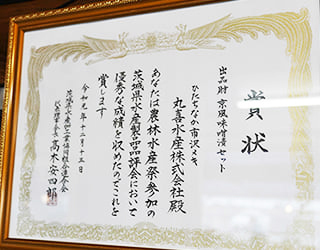 賞状
出品財 京風味噌漬セット
ひたちなか市沢メキ
丸喜水産株式会社殿
あなたは農林水産祭参加の
茨城県水産製品品評会において
優秀な成績を収めたのでこれを
賞します
令和元年十二月十三日
代表理事会長 高木安四郎